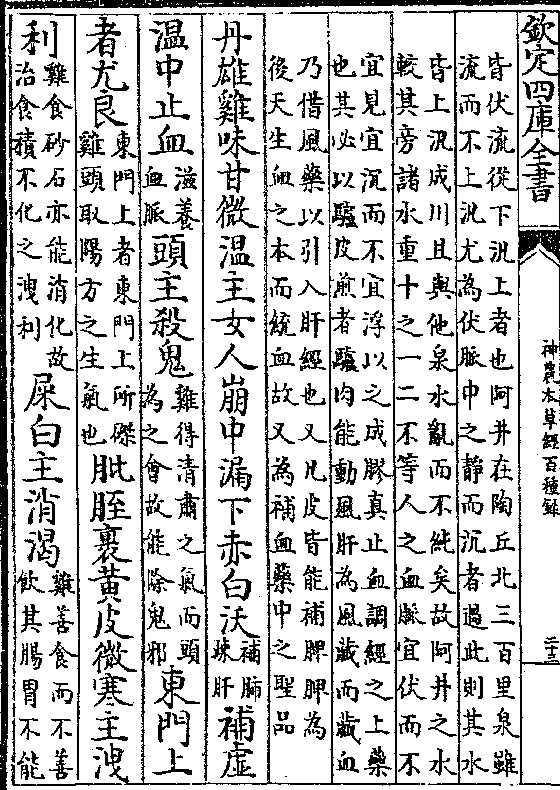 欽定四庫全書
神農本草經百種錄
二十三
皆伏流從下汎上者也阿井在陶丘北三百里泉雖
流而不上汎尤為伏脈中之靜而沉者過此則其水
皆上汎成川且與他泉水亂而不純矣故阿井之水
較其旁諸水重十之一二不等人之血脈宜伏而不
宜見宜沉而不宜浮以之成膠真止血調經之上藥
也其必以驢皮煎者驢肉能動風肝為風藏而藏血
乃借風藥以引入肝經也又凡皮皆能補脾脾為
後天生血之本而統血故又為補血藥中之聖品
丹雄雞味甘微溫主女人崩中漏下赤白沃補肺疎肝補虛
溫中止血滋養血脈頭主殺鬼雞得清肅之氣而頭為之會故能除鬼邪東門上
者尤良東門上者東門上所磔雞頭取陽方之生氣也肶胵裹黃皮微寒主洩
利雞食砂石亦能消化故治食積不化之洩利屎白主消渴雞善食而不善飲其腸胃不能